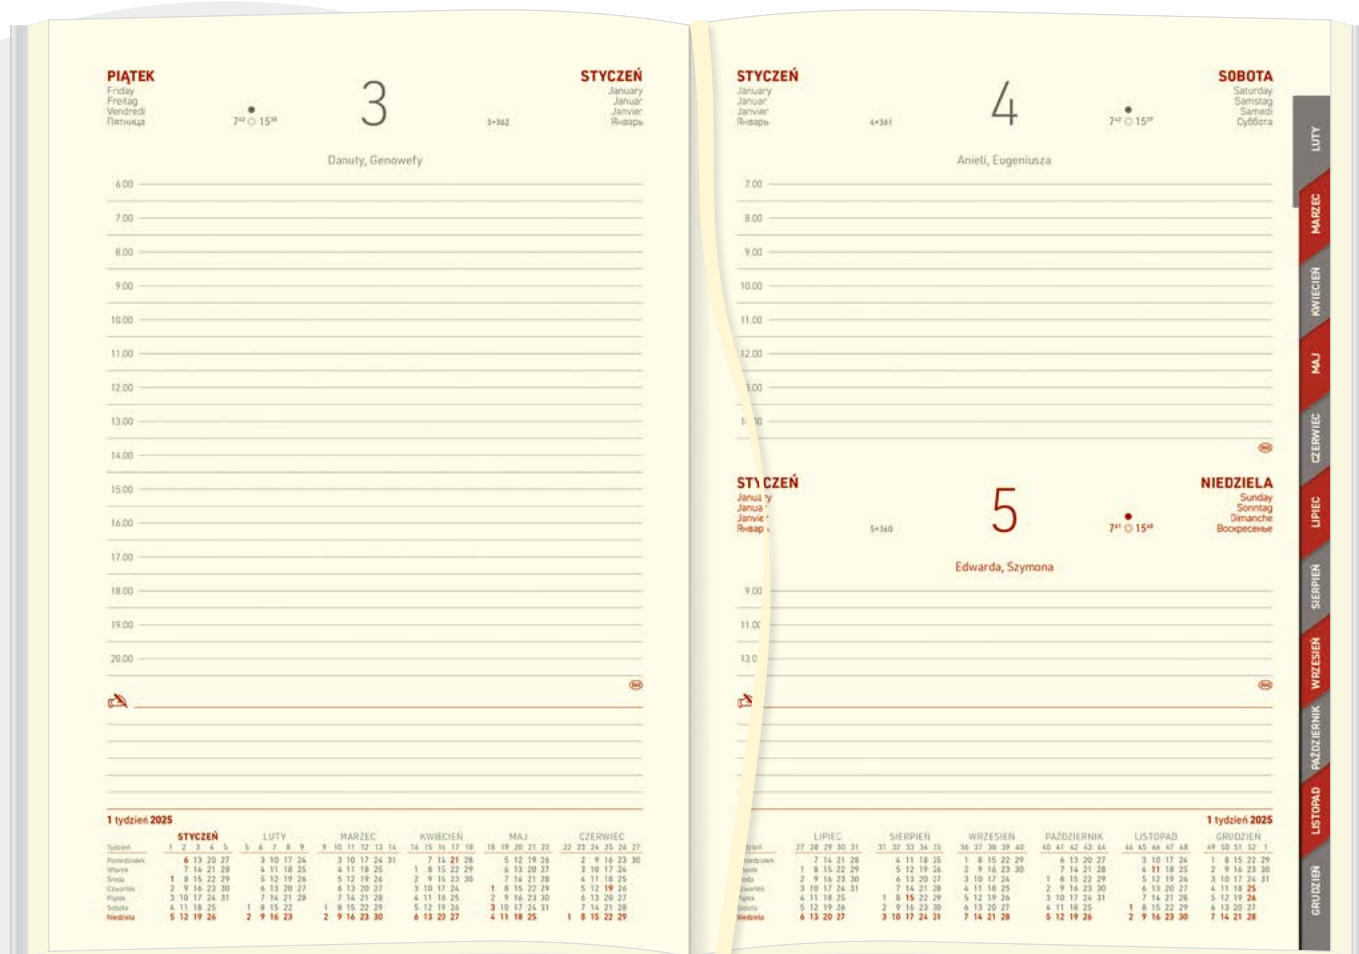 PIĄTEK
Friday
Freitag
Vendredi
Пятница
7⁴² 15³⁸
3
3+362
STYCZEŃ
January
Januar
Janvier
Январь
Danuty, Genowefy
6.00
7.00
8.00
9.00
10.00
11.00
12.00
13.00
14.00
15.00
16.00
17.00
18.00
19.00
20.00
1 tydzień 2025
STYCZEŃ LUTY MARZEC KWIECIEŃ MAJ CZERWIEC
Tydzień 1 2 3 4 5 5 6 7 8 9 9 10 11 12 13 14 14 15 16 17 18 18 19 20 21 22 22 23 24 25 26 27
Poniedziałek 6 13 20 27 3 10 17 24 3 10 17 24 31 7 14 21 28 5 12 19 26 2 9 16 23 30
Wtorek 7 14 21 28 4 11 18 25 4 11 18 25 1 8 15 22 29 6 13 20 27 3 10 17 24
Środa 1 8 15 22 29 5 12 19 26 5 12 19 26 2 9 16 23 30 7 14 21 28 4 11 18 25
Czwartek 2 9 16 23 30 6 13 20 27 6 13 20 27 3 10 17 24 1 8 15 22 29 5 12 19 26
Piątek 3 10 17 24 31 7 14 21 28 7 14 21 28 4 11 18 25 2 9 16 23 30 6 13 20 27
Sobota 4 11 18 25 1 8 15 22 1 8 15 22 29 5 12 19 26 3 10 17 24 31 7 14 21 28
Niedziela 5 12 19 26 2 9 16 23 2 9 16 23 30 6 13 20 27 4 11 18 25 1 8 15 22 29
STYCZEŃ
January
Januar
Janvier
Январь
4+361
4
7⁴² 15³⁹
SOBOTA
Saturday
Samstag
Samedi
Суббота
Anieli, Eugeniusza
7.00
8.00
9.00
10.00
11.00
12.00
STYCZEŃ
January
Janvier
5+360
5
7⁴¹ 15⁴⁰
NIEDZIELA
Sunday
Sonntag
Dimanche
Воскресенье
Edwarda, Szymona
9.00
11.00
1 tydzień 2025
LIPIEC SIERPIEŃ WRZESIEŃ PAŹDZIERNIK LISTOPAD GRUDZIEŃ
27 28 29 30 31 31 32 33 34 35 36 37 38 39 40 40 41 42 43 44 44 45 46 47 48 49 50 51 52 1
7 14 21 28 4 11 18 25 1 8 15 22 29 6 13 20 27 3 10 17 24 1 8 15 22 29
1 8 15 22 29 5 12 19 26 2 9 16 23 30 7 14 21 28 4 11 18 25 2 9 16 23 30
2 9 16 23 30 6 13 20 27 3 10 17 24 1 8 15 22 29 5 12 19 26 3 10 17 24 31
3 10 17 24 31 7 14 21 28 4 11 18 25 2 9 16 23 30 6 13 20 27 4 11 18 25
4 11 18 25 1 8 15 22 29 5 12 19 26 3 10 17 24 31 7 14 21 28 5 12 19 26
5 12 19 26 2 9 16 23 30 6 13 20 27 4 11 18 25 1 8 15 22 29 6 13 20 27
Niedziela 6 13 20 27 3 10 17 24 31 7 14 21 28 5 12 19 26 2 9 16 23 30 7 14 21 28
LUTY
MARZEC
KWIECIEŃ
MAJ
CZERWIEC
LIPIEC
SIERPIEŃ
WRZESIEŃ
PAŹDZIERNIK
LISTOPAD
GRUDZIEŃ